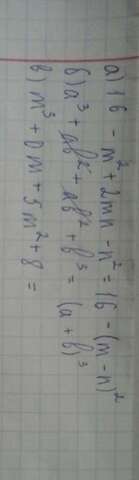 а) 16 - m² + 2mn - n² = 16 - (m - n)²
б) a³ + ab² + ab² + b³ = (a + b)³
в) m³ + 0m + 5m² + 8 =